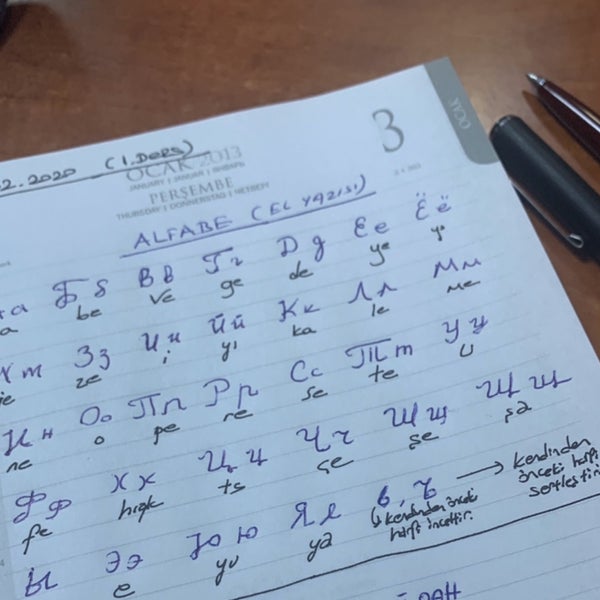 2.2020 (1.DERS)
OCAK 2013
JANUARY | JANUAR | ЯНВАРЬ
PERŞEMBE
THURSDAY | DONNERSTAG | ЧЕТВЕРГ
3
OCAK
ALFABE (EL YAZISI)
а Б б В в Г г Д д Е е Ё ё
a be ve ge de ye yo
З з И и Й й К к Л л М м
ze i yı ka le me
Н н О о П п Р р С с Т т У у
ne o pe re se te u
Ф ф Х х Ц ц Ч ч Ш щ Щ щ
fe hıçk ts çe şe şa
Ы Э э Ю ю Я я ь, ъ → kendinden önceki harfi sertleştiri
e yu ya ↳ kendinden önceki harfi inceltir.